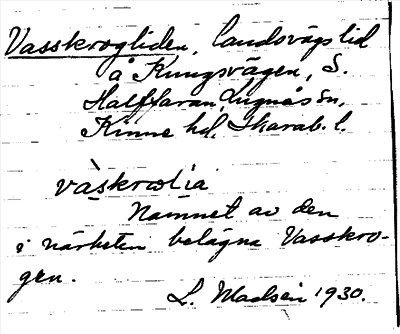 Vasskrogliden, landsvägslid
å Kungsvägen, S.
Hallsaran, Lugnås sn,
Kinne hd, Skarab. l.
vàskrɷlia
Namnet av den
i närheten belägna Vasskro-
gen.
L. Madsén 1930.